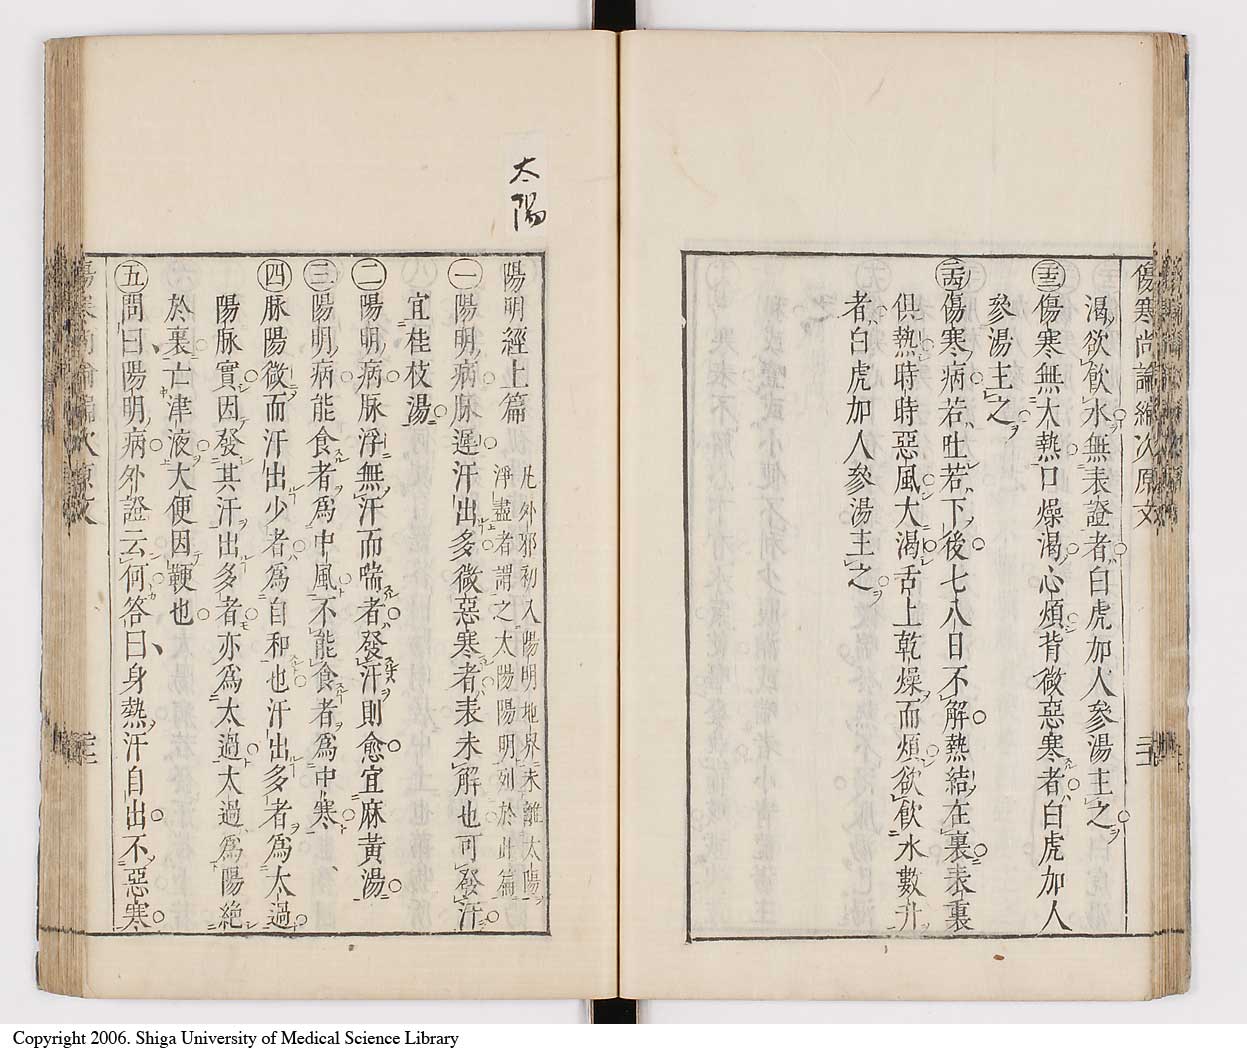 傷寒尚論編次原文
渴欲飲水無表證者白虎加人參湯主之
傷寒無大熱口燥渴心煩背微惡寒者白虎加人
參湯主之
傷寒病若吐若下後七八日不解熱結在裏表裏
俱熱時時惡風大渴舌上乾燥而煩欲飲水數升
者白虎加人參湯主之
太陽
陽明經上篇
凡外邪初入陽明地界未離太陽
淨盡者謂之太陽陽明列於此篇
一 陽明病脉遲汗出多微惡寒者表未解也可發汗
宜桂枝湯
二 陽明病脉浮無汗而喘者發汗則愈宜麻黃湯
三 陽明病能食者為中風不能食者為中寒
四 脉陽微而汗出少者為自和也汗出多者為太過
陽脉實因發其汗出多者亦為太過太過為陽絶
於裏亡津液大便因鞕也
五 問曰陽明病外證云何答曰身熱汗自出不惡寒
Copyright 2006. Shiga University of Medical Science Library